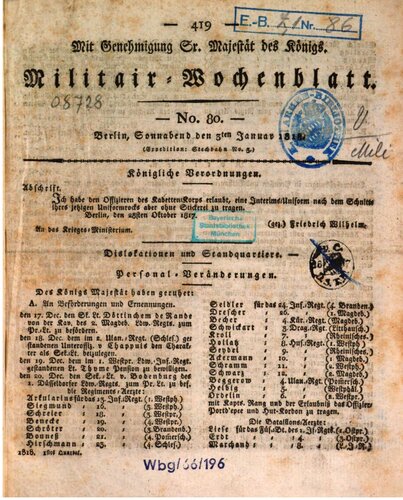 — 419 —
E.-B. Z1 Nr. 86
Mit Genehmigung Sr. Majestät des Königs.
Militair-Wochenblatt.
08728
— No. 80. —
Berlin, Sonnabend den 3ten Januar 1818.
(Expedition: Stechbahn No. 3.)
Königliche Verordnungen.
Abschrift.
Ich habe den Offizieren des KadettenKorps erlaubt, eine Interims-Uniform nach dem Schnitte
ihrers jetzigen Uniformrocks aber ohne Stickerei zu tragen.
Berlin, den 28sten Oktober 1817.
(gez.) Friedrich Wilhelm.
An das Krieges-Ministerium.
Bayerische
Staatsbibliothek
München
Dislokationen und Standquartiere.
Personal-Veränderungen.
Des Königs Majestät haben geruhet:
A. An Beförderungen und Ernennungen.
den 17. Dec. den Sk. Lt. Döttinchem de Rande
von der Kav. des 2. Magdeb. Ldw. Regts. zum
Pr. Lt. zu befördern.
den 18. Dec. dem im 2. Ulan. (Schles.) Regt.
gestandenen Unteroffiz. v Chappuis den Charakter
als Sek.Lt. beizulegen.
den 19. Dec. den im 1. Westpr. Ldw. Inf.-Regt.
gestandenen Lt. Thyme Pension zu bewilligen.
den 20. Dec. den Sk. Lt. v Bodenburg des
1. Düsseldorfer Ldw. Regts. zum Pr. Lt. zu bef.
die Regiments-Aerzte:
Arkularius für das 13. Inf. Regt. (1. Westph.)
Siegmund " 16 " (3. Westph.)
Schreier " 23 " (2. Schles.)
Benecke " 15 " (2. Westph.)
Schröter " 20 " (3. Brandenb.)
Bonneß " 21 " (4. Pommersch.)
Hirnschmann " 22 " (1. Schles.)
Seidler für das 24. Inf. Regt. (4. Branden.)
Drescher " 26 " (1. Magdeb.)
Becher " 7 Kür. Regt. (Magdeb.)
Schmickart " 3. Drag. Regt. (Litthauisch.)
Kroll " 4
Hollatz " 8. Hus. Regt. (1. Westph.)
Seydel " 9 " (Rheinisch.)
Ackermann " 10 " (1. Magdeb.)
Schramm " 11 " (2. Westph.)
Schwarz " 12 " (2. Magdeb.)
Beggerow " 4. Ulan. Regt. (Pommersch.)
Helbig " 5 " (Westph.)
Orderlin " 6 " (2. Westph.)
mit Kapts. Rang und der Erlaubniß das Offizier-
Portd'epee und Hut-Kordon zu tragen.
Die Bataillons-Aerzte:
Liefe für das Füs.Bat. des 2. Inf.-Regts. (1. Ostpr.)
Erdt " 4 " (3. Ostpr.)
Marchand " 5 " (4. Ostpr.)
1818. 1stes Quartal.
Wbg/66/196